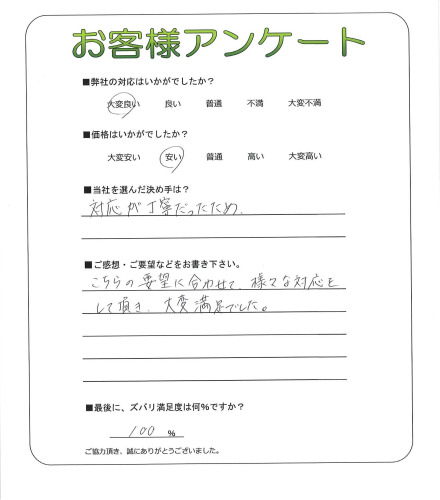 お客様アンケート
■弊社の対応はいかがでしたか？
大変良い 良い 普通 不満 大変不満
■価格はいかがでしたか？
大変安い 安い 普通 高い 大変高い
■当社を選んだ決め手は？
対応が丁寧だったため、
■ご感想・ご要望などをお書き下さい。
こちらの要望に合わせて、様々な対応を
して頂き、大変満足でした。
■最後に、ズバリ満足度は何％ですか？
100 ％
ご協力頂き、誠にありがとうございました。